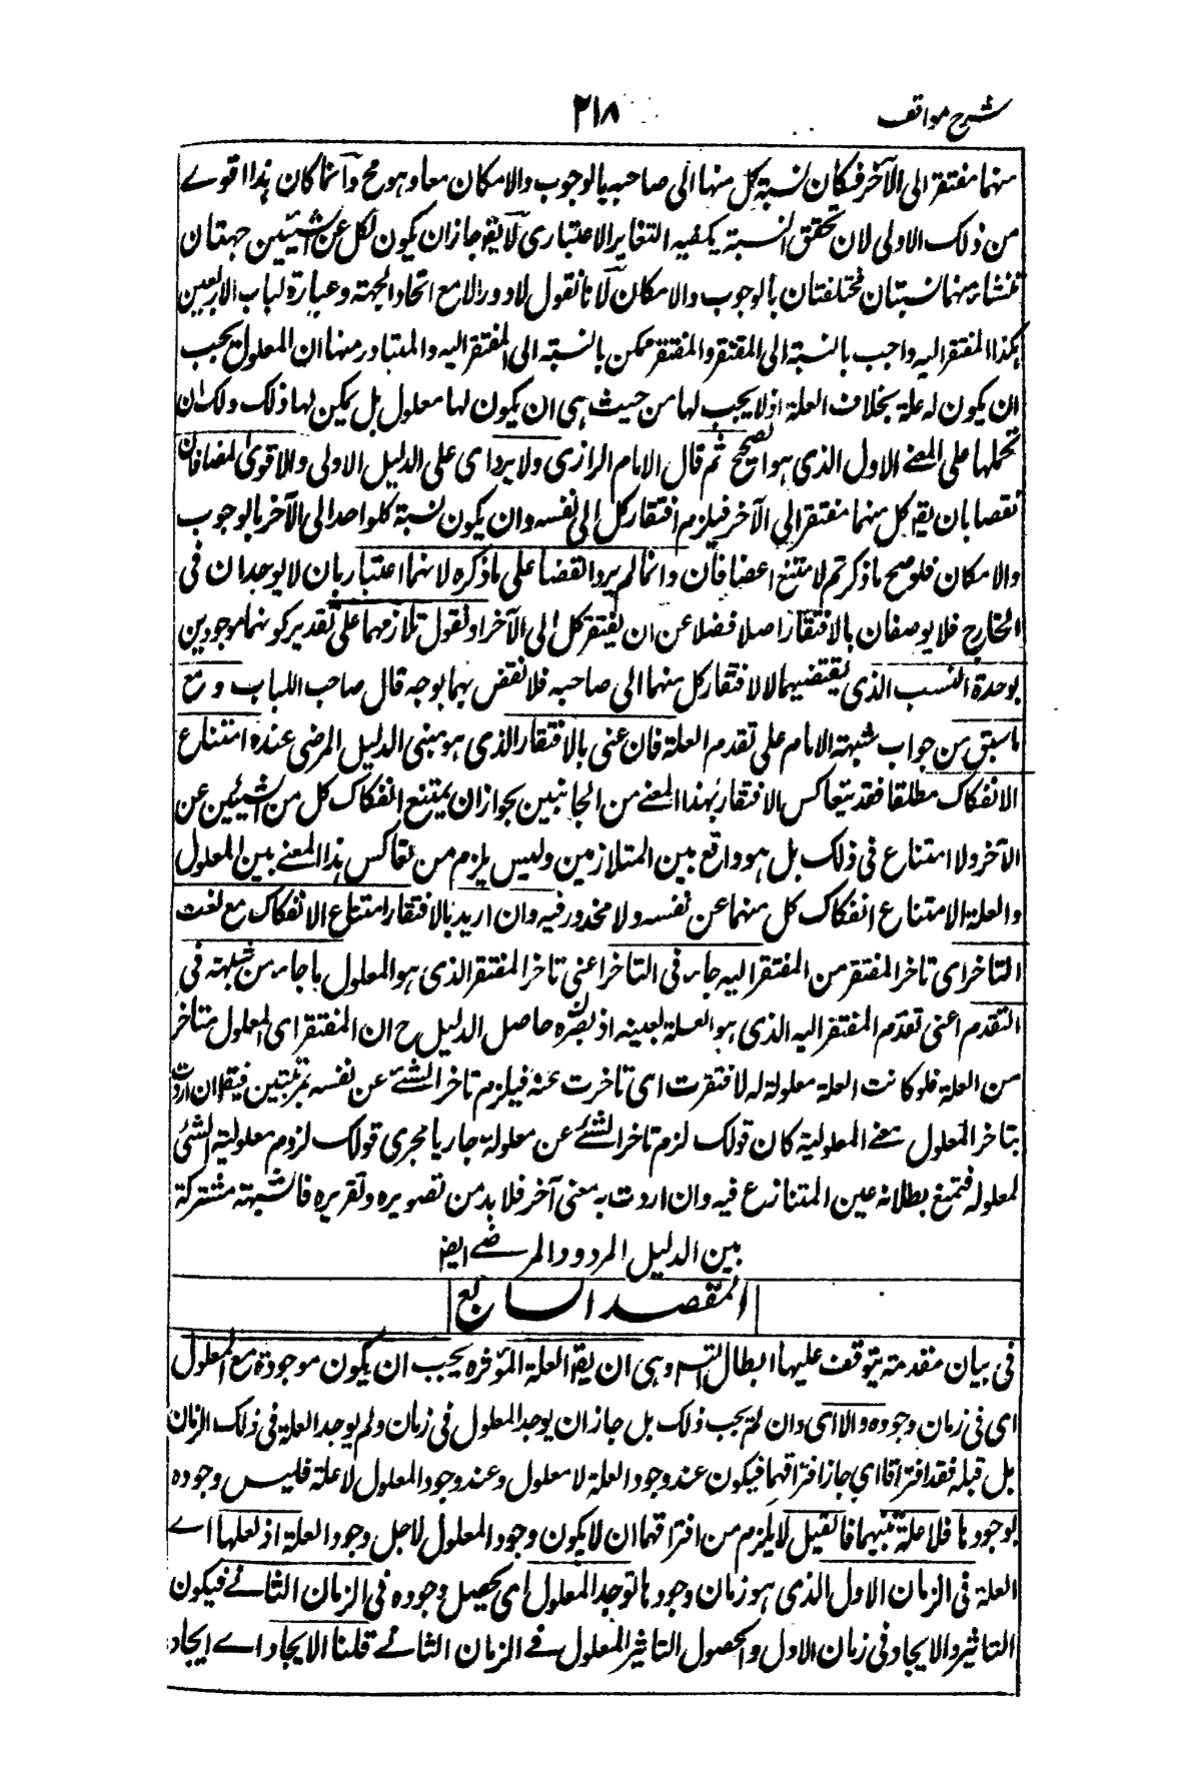 شرح مواقف
٢١٨
منهما مفتقر الى الآخر فكان نسبة كل منهما الى صاحبه بالوجوب والامكان معا وهو مح وانما كان هذا اقوے
من ذلك الاولى لان تحقق النسبة يكفيه التغاير الاعتبارى لا يقه جاز ان يكون لكل عن الشيئين جهتان
تنشاء منهما نسبتان مختلفتان بالوجوب والامكان لانا نقول لا دور الا مع اتحاد الجهة وعبارة لباب الاربعين
هكذا المفتقر اليه واجب بالنسبة الى المفتقر والمفتقر ممكن بالنسبة الى المفتقر اليه والمتبادر منها ان المعلول يجب
ان يكون له علة بخلاف العلة اذ لا يجب لها من حيث هى ان يكون لها معلول بل يمكن لها ذلك ولك ان
تحملها على المعنے الاول الذى هو الصحيح ثم قال الامام الرازى ولا يرد اى على الدليل الاولى والاقوى المضافان
نقضا بان يقه كل منهما مفتقر الى الآخر فيلزم افتقار كل الى نفسه وان يكون نسبة كل واحد الى الآخر بالوجوب
والامكان فلو صح ما ذكرتم لامتنع المضافان وانما لم يردا نقضا على ما ذكره لانهما اعتباريان لا يوجدان فى
الخارج فلا يوصفان بالافتقار اصلا فضلا عن ان يفتقر كل الى الآخر او نقول تلازمهما على تقدير كونهما موجودين
بوحدة السبب الذى يقتضيهما لا لافتقار كل منهما الى صاحبه فلا نقض بهما بوجه قال صاحب اللباب و مع
ما سبق من جواب شبهة الامام على تقدم العلة فان عنى بالافتقار الذى هو مبنى الدليل المرضى عنده امتناع
الانفكاك مطلقا فقد يتعاكس الافتقار بهذا المعنے من الجانبين بجواز ان يمتنع انفكاك كل من الشيئين عن
الآخر ولا امتناع فى ذلك بل هو واقع بين المتلازمين وليس يلزم من تعاكس هذا المعنے بين المعلول
والعلة الا امتناع انفكاك كل منهما عن نفسه ولا محذور فيه وان اريد بالافتقار امتناع الانفكاك مع نعت
التاخر اى تاخر المفتقر من المفتقر اليه جاء فى التاخر اعنى تاخر المفتقر الذى هو المعلول ما جاء من شبهته فى
التقدم اعنى تقدم المفتقر اليه الذى هو العلة بعينه اذ يصير حاصل الدليل ح ان المفتقر اى المعلول متاخر
من العلة فلو كانت العلة معلولة له لافتقرت اى تاخرت عنه فيلزم تاخر الشئ عن نفسه بمرتبتين فيقه ان اردت
بتاخر المعلول معنے المعلولية كان قولك لزم تاخر الشئ عن معلوله جاريا مجرى قولك لزوم معلولية الشئ
لمعلوله فتمنع بطلانه عين المتنازع فيه وان اردت به معنى آخر فلا بد من تصويره وتقريره فالشبهة مشتركة
بين الدليل المردود والمرضے ايضا
المقصد السابع
فى بيان مقدمة يتوقف عليها ابطال التسه وهى ان يقه العلة المؤثره يجب ان يكون موجودة مع المعلول
اى فى زمان وجوده والا اى وان لم يجب ذلك بل جاز ان يوجد المعلول فى زمان ولم يوجد العلة فى ذلك الزمان
بل قبله فقد افترقا اى جاز افتراقهما فيكون عند وجود العلة لا معلول وعند وجود المعلول لا علة فليس وجوده
لوجودها فلا علة بينهما فان قيل لا يلزم من افتراقهما ان لا يكون وجود المعلول لاجل وجود العلة اذ لعلها اے
العلة فى الزمان الاول الذى هو زمان وجودها توجد المعلول اى يحصل وجوده فى الزمان الثانے فيكون
التاثير والايجاد فى زمان الاول والحصول التاثير المعلول فے الزمان الثانے قلنا الايجاد اے ايجاد